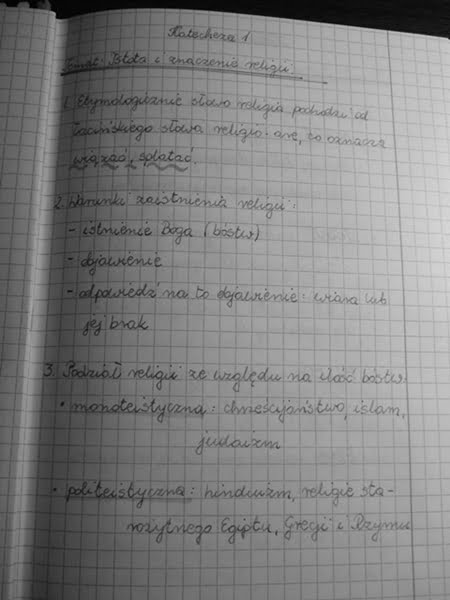 Katecheza 1
Temat: Istota i znaczenie religii.
1. Etymologicznie słowo religia pochodzi od
łacińskiego słowa religio-are, co oznacza
wiązać, splatać.
2. Warunki zaistnienia religii:
- istnienie Boga (bóstw)
- objawienie
- odpowiedź na to objawienie: wiara lub
jej brak
3. Podział religii ze względu na ilość bóstw
• monoteistyczną: chrześcijaństwo, islam,
judaizm
• politeistyczną: hinduizm, religie sta-
rożytnego Egiptu, Grecji i Rzymu